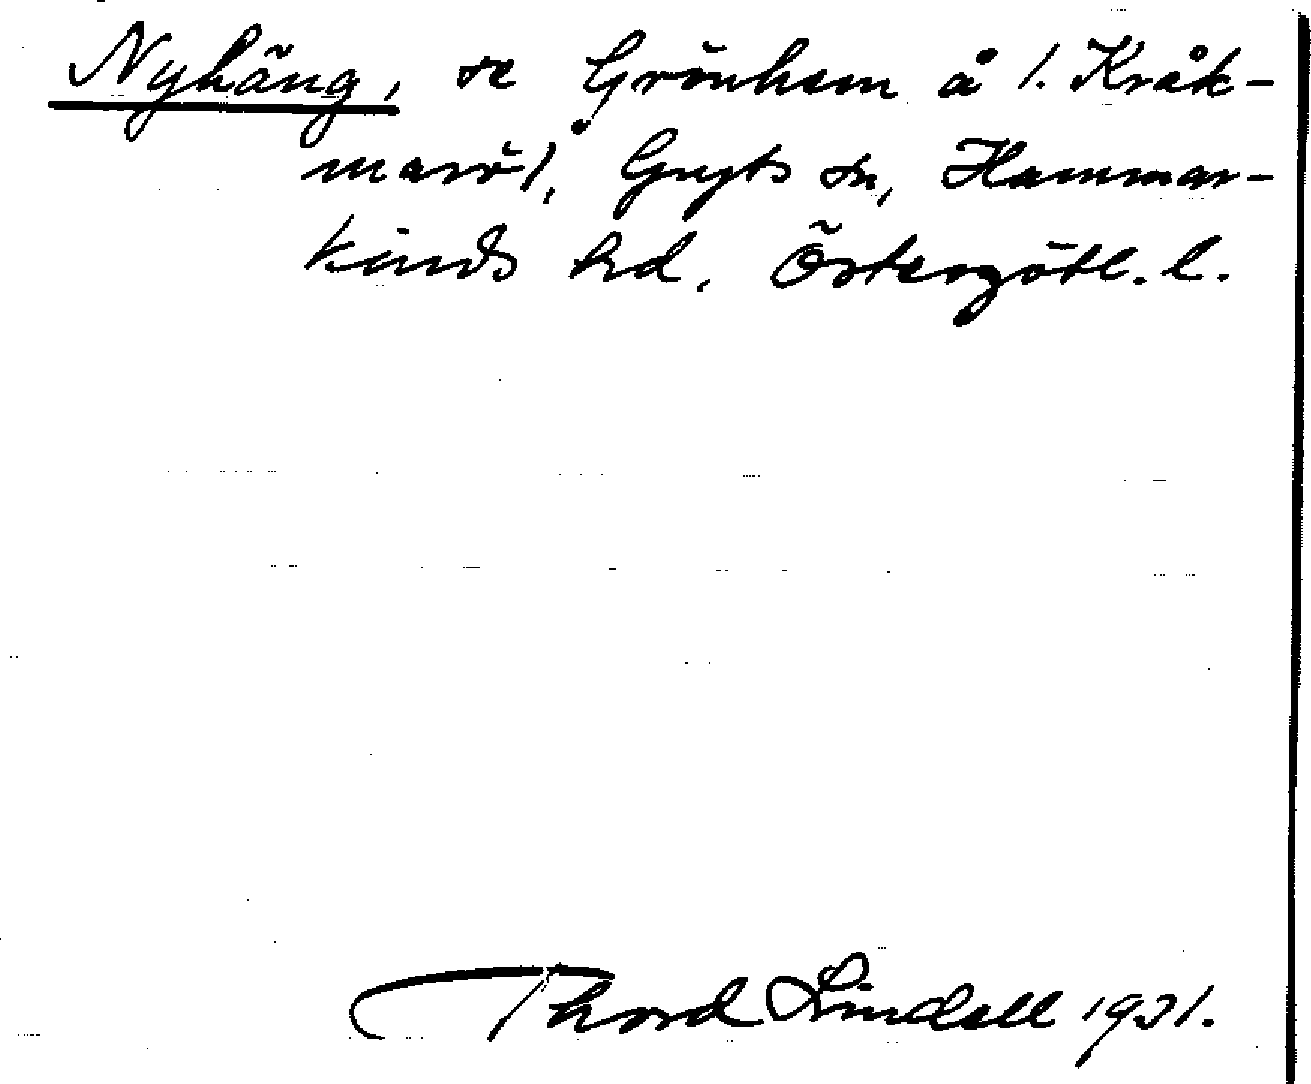 Nyhäng, se Grönhem å /. Kråk-
marö/, Gryts sn, Hammar-
kinds hd, Östergötl. l.
Thord Lindell 1931.